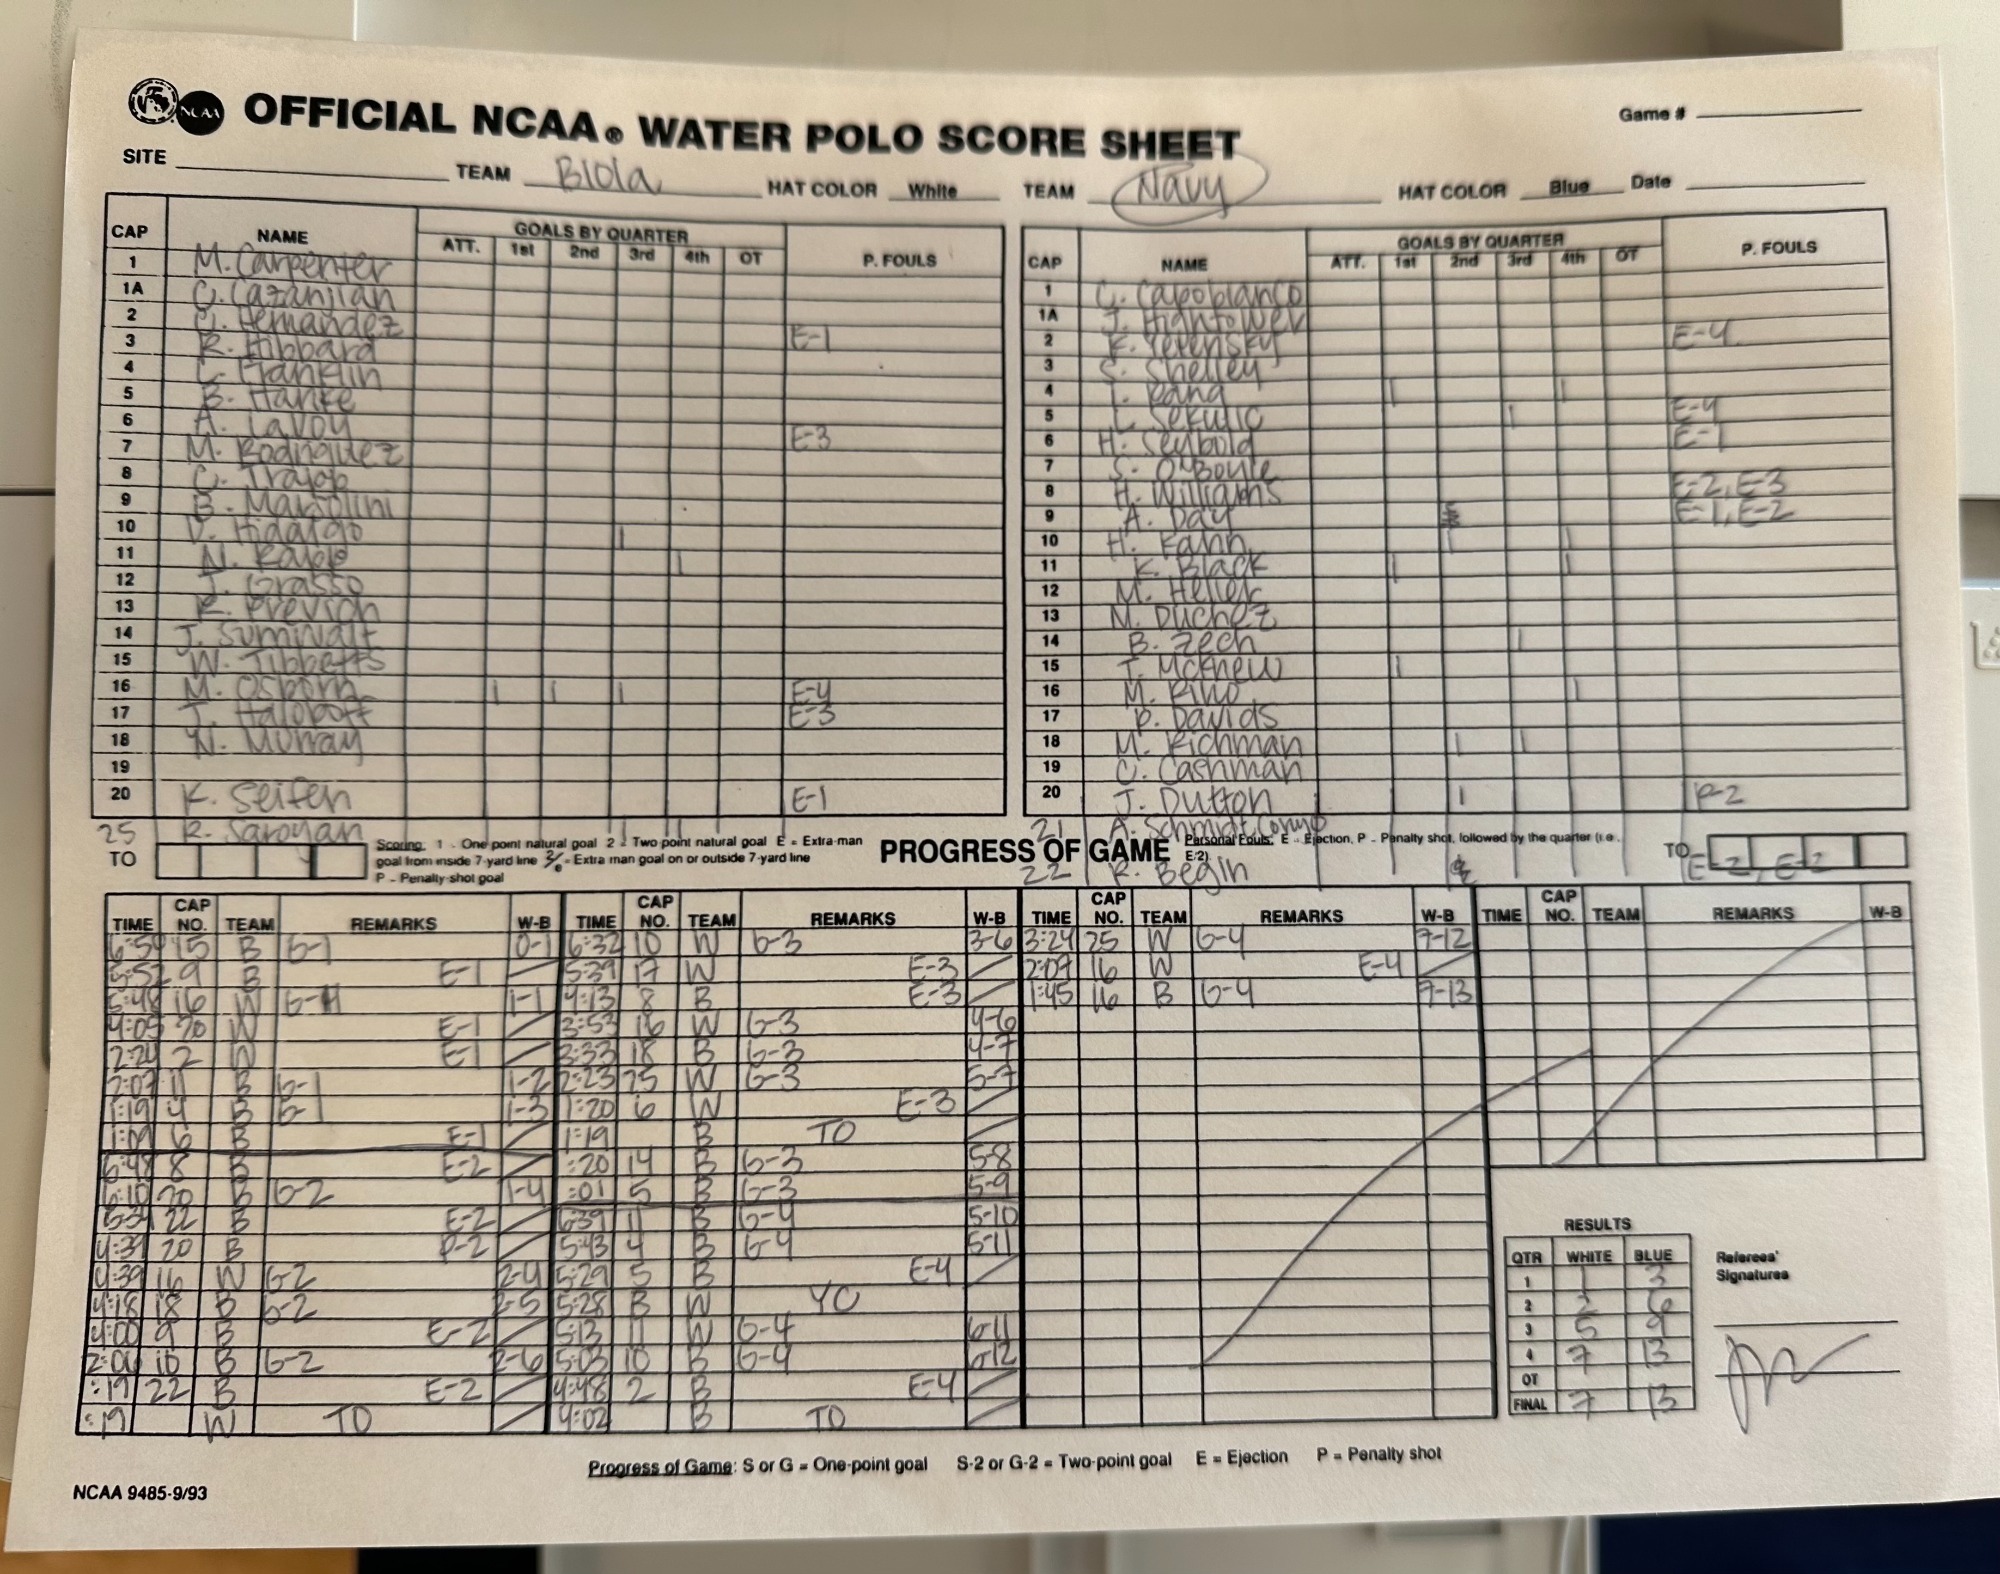 OFFICIAL NCAA® WATER POLO SCORE SHEET
Game #
SITE TEAM Biola HAT COLOR White TEAM Navy HAT COLOR Blue Date
CAP NAME ATT. GOALS BY QUARTER 1st 2nd 3rd 4th OT P. FOULS
1 M. Carpenter
1A C. Cazanjian
2 C. Hernandez
3 R. Hibbard E-1
4 C. Franklin
5 B. Hanke
6 A. Lavoy
7 M. Rodriguez E-3
8 C. Trajop
9 B. Marsolini
10 D. Hidalgo
11 N. Rapp
12 J. Grasso
13 K. Previch
14 J. Sumiwalt
15 W. Tibbetts
16 M. Osborn E-4
17 J. Haloboff E-3
18 N. Murray
19
20 K. Seifen E-1
25 R. Saroyan
CAP NAME ATT. GOALS BY QUARTER 1st 2nd 3rd 4th OT P. FOULS
1 C. Capobianco
1A J. Hightower
2 K. Terensky E-4
3 S. Shelley
4 I. Rana
5 L. Sekulic E-4
6 H. Seybold E-1
7 S. O'Boyle
8 H. Williams E-2, E-3
9 A. Day E-1, E-2
10 H. Fann
11 K. Black
12 M. Heller
13 M. Duchez
14 B. Zech
15 T. McKnew
16 M. Rino
17 P. Davids
18 M. Richman
19 C. Cashman
20 J. Dutton P-2
21 A. Schmidt
22 R. Begin E-2, E-2
TO
Scoring: 1 - One point natural goal 2 - Two point natural goal E = Extra-man
goal from inside 7-yard line 2/e = Extra man goal on or outside 7-yard line
P - Penalty-shot goal
PROGRESS OF GAME
Personal Fouls: E - Ejection, P - Penalty shot, followed by the quarter (i.e.
E/2)
TO
TIME CAP NO. TEAM REMARKS W-B
6:59 15 B G-1 0-1
5:52 9 B E-1
5:48 16 W G-1 1-1
4:05 20 W E-1
2:24 2 W E-1
2:07 11 B G-1 1-2
1:19 4 B G-1 1-3
1:09 6 B E-1
6:48 8 B E-2
6:10 20 B G-2 1-4
5:34 22 B E-2
4:39 20 B P-2
4:39 16 W G-2 2-4
4:18 18 B G-2 2-5
4:00 9 B E-2
2:06 10 B G-2 2-6
:19 22 B E-2
:19 W TO
TIME CAP NO. TEAM REMARKS W-B
6:32 10 W G-3 3-6
5:39 17 W E-3
4:13 8 B E-3
3:53 16 W G-3 4-6
3:33 18 B G-3 4-7
2:23 25 W G-3 5-7
1:20 6 W E-3
1:19 B TO
:20 14 B G-3 5-8
:01 5 B G-3 5-9
6:39 11 B G-4 5-10
5:43 4 B G-4 5-11
5:29 5 B E-4
5:28 B W YC
5:13 11 W G-4 6-11
5:03 10 B G-4 6-12
4:48 2 B E-4
4:02 B TO
TIME CAP NO. TEAM REMARKS W-B
3:24 25 W G-4 7-12
2:07 16 W E-4
1:45 16 B G-4 7-13
TIME CAP NO. TEAM REMARKS W-B
RESULTS
QTR WHITE BLUE
1 1 3
2 2 6
3 5 9
4 7 13
OT
FINAL 7 13
Referees'
Signatures
Progress of Game: S or G = One-point goal S-2 or G-2 = Two-point goal E = Ejection P = Penalty shot
NCAA 9485-9/93